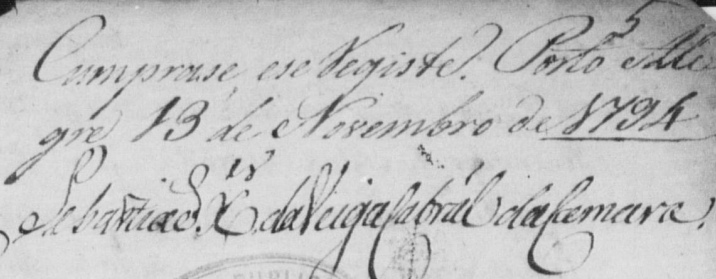 Cumprase, e se Registe. Porto Ale
gre 13 de Novembro de 1794
Sebastiaõ X.er da Veiga Cabrál da Camara.